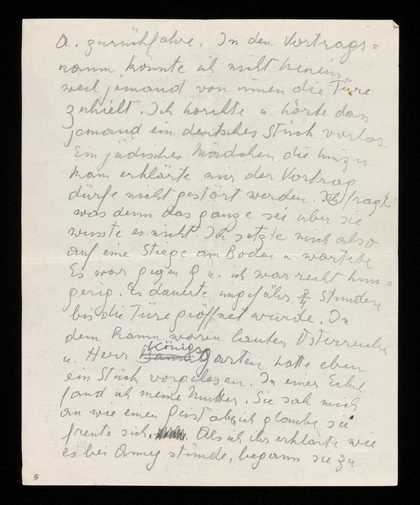 A. zurückfahre. In den Vortrags=
raum konnte ich nicht hinein
weil jemand von innen die Türe
zuhielt. Ich horchte u. hörte dass
jemand ein deutsches Stück vorlas.
Ein jüdisches Mädchen die hinzu
kam erklärte mir der Vortrag
dürfe nicht gestört werden. Ich fragte
was denn das ganze sei aber sie
wusste es nicht. Ich setzte mich also
auf eine Stiege am Boden u. wartete
Es war gegen 9 u. ich war recht hun=
gerig. Es dauerte ungefähr Stunden
bis die Türe geöffnet wurde. In
dem Raum waren lauter Österreicher
u. Herr Königsgarten hatte eben
ein Stück vorgelesen. In einer Ecke
fand ich meine Mutter. Sie sah mich
an wie einen Geist aber ich glaube sie
freute sich. Als ich ihr erklärte wie
es bei Amy stünde, begann sie zu
5